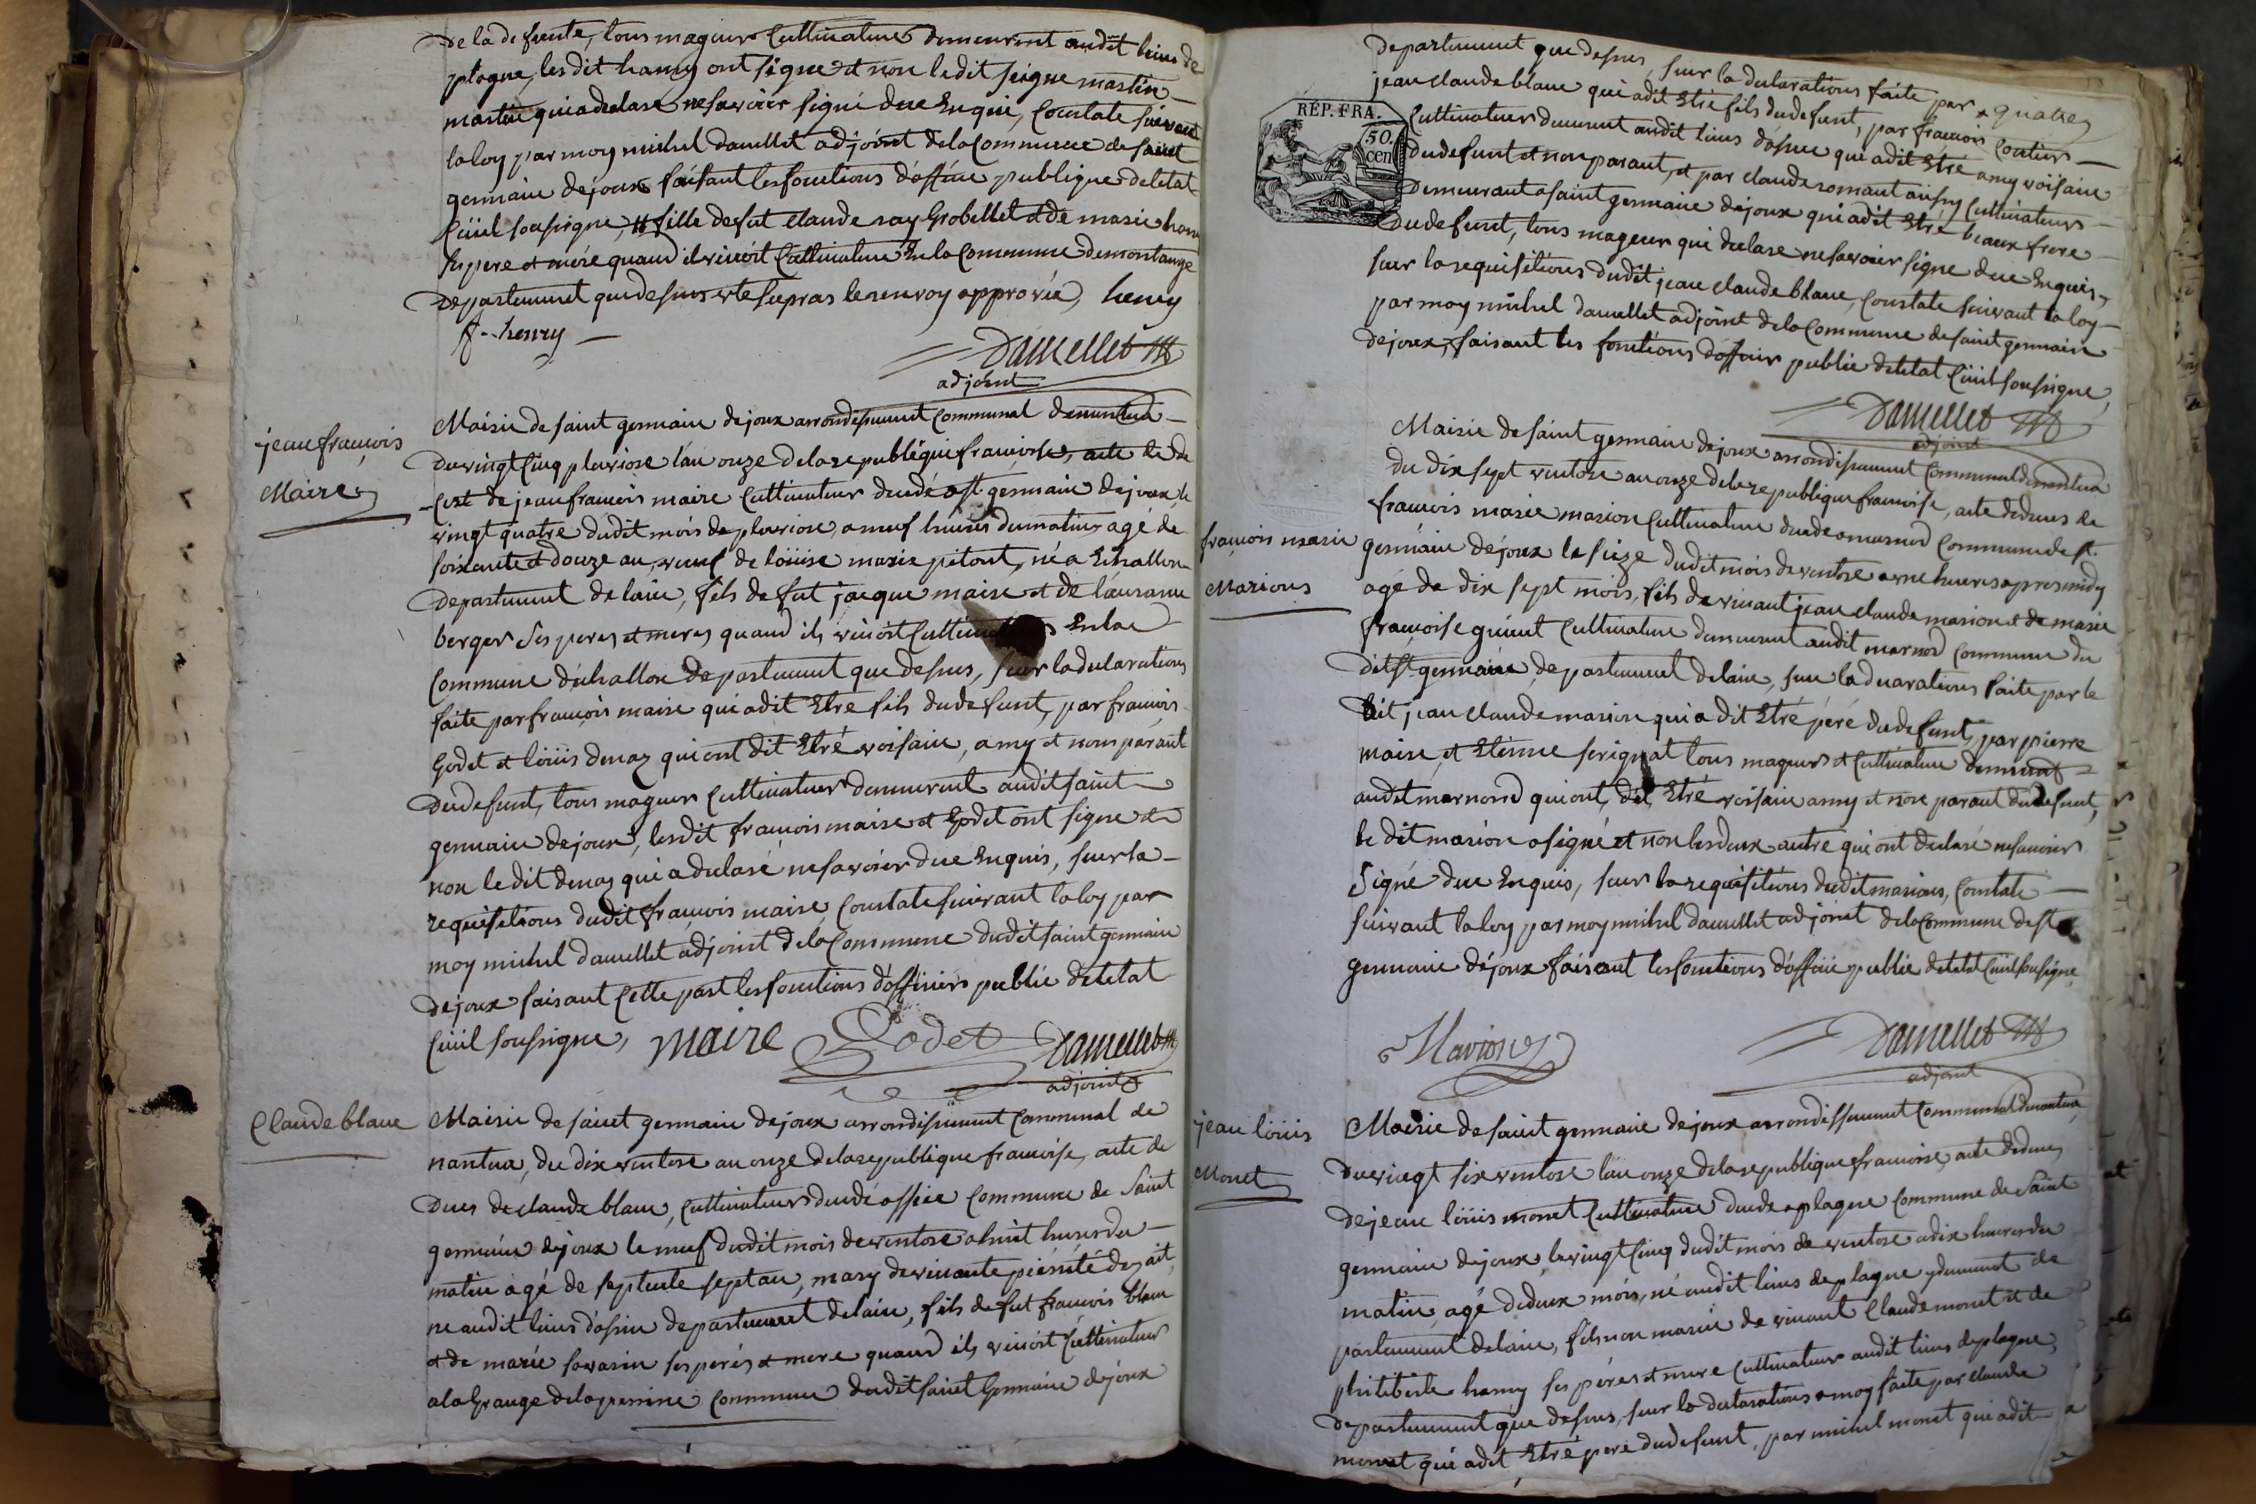 De la defunte, tous mageur Cultivateur demeurant audit lieux de
plagne, les dit hanry ont signe et non le dit seigne martin
martin qui a declaré ne savoir signé due Enquie, Constate suivant
la loy par moy michel Daucellet adjoint de la Commune de saint
germain dejoux faisant les fonctions d'officie publique deletat
Civil soussigne, # fille de fut claude ray Grobellet et de marie
ses pere et mére quand il vivoit Cultivateur En la Commune demontange
Departement que desus le renvoy approvée, henry
f. henry
Daucellet
adjoint
jean françois
Maire
Mairie de saint germain dejoux arrondissement Communal denantua
Du vingt Cinq pluviose l'an onze de la republique françoise, acte de de
Cest de jean francois maire Cultivateur decedé a st germain dejoux le
vingt quatre dudit mois de pluviose, a neuf heures du matin agé de
soixante et douze an, veuf de loüise marie pitout, né a Echallon
Departement de lain, fils de fut jacque maire et de l'auranne
berger Ses peres et meres quand ils vivoit Enla
Commune d'échallon departement que desus, sur la declarations
faite par françois maire qui a dit Etre fils du defunt, par francois
Godet et loüis denaz qui ont dit Etré voisain, amy et non parant
Du defunt, tous mageur Cultivateur demeurent audit saint
germain dejoux, les dit francois maire et Godet ont signe et
non le dit denaz qui a declaré ne savoir due Enquis, sur la
requisitions dudit françois maire Constate suivant la loy par
moy michel daucellet adjoint de la Commune dudit saint germain
dejoux faisant Cette part les fonctions d'officiers public deletat
Civil soussigne, maire Godet Daucellet
adjoint
Claude blanc
Mairie de saint germain dejoux arrondissement Communal de
nantua, du dix ventose an onze de la republique francoise, acte de
Deces de claude blanc, Cultivateur decedé Commune de saint
germain dejoux le neuf dudit mois de ventose a huit heures du
matin agé de septente sept an, mary de vivante
ne audit lieux departement de lain, fils de fut francois blanc
et de marie savarin ses perés et mere quand ils vivoit Cultivateur
a la Grange de la perrine Commune dudit saint Germain dejoux
departement que desus, sur la declarations faite par
jean claude blanc qui a dit Etré fils du defunt, par francois
Cultivateur demeurant audit lieux qui a dit Etré amy voisain
du defunt et non parant, et par claude romant aussy Cultivateur
Demeurant a saint germain dejoux qui a dit Etré beaux frere
Du defunt, tous mageur qui declare ne savoir signe due Enquis,
sur la requisitions dudit jean claude blanc, Constate suivant la loy
par moy michel daucellet adjoint de la Commune de saint germain
dejoux, faisant les fonctions d'officie public deletat Civil soussigne,
RÉP. FRA.
50
cen
Daucellet
adjoint
françois marie
Marions
Mairie de saint germain dejoux arrondissement Communal denantua
du dix sept ventose an onze de la republique francoise, acte dedeces de
francois marie marion Cultivateur decede a marnod Commune de st
germain dejoux le sieze dudit mois de ventose a une heures apres midy
agé de dix sept mois, fils de vivant jean claude marion et de marie
francoise Cultivateur demeurant audit marnod Commune du
dit st germain, departement de lain, sur la declarations faite par le
dit jean claude marion qui a dit Etré peré du defunt, par pierre
maire, et Etienne serignat tous mageurs et Cultivateur demeurant
audit marnod qui ont dit Etré voisain amy et non parant du defunt,
le dit marion a signé et non les deux autre qui ont declaré ne savoir
Signé due Enquis, sur la requisitions dudit marions, Constate
suivant la loy par moy michel daucellet adjoint de la Commune de st
germain déjoux faisant les fonctions d'officie public deletat Civil soussigne,
Marions Daucellet
adjoint
jean loüis
Monet
Mairie de saint germain dejoux arrondissement Communal denantua
Du vingt six ventose l'an onze de la republique francoise, acte dedeces
de jean loüis monet Cultivateur decede a plagne Commune de saint
germain dejoux, le vingt Cinq dudit mois de ventose a dix heures du
matin, agé de deux mois, né audit lieux de plagne de
partement de lain, fils non marié de vivant Claude monet et de
philiberte hanry ses péres et mere Cultivateur audit lieux de plagne,
departement que desus, sur la declarations a moy faite par claude
monet qui a dit Etré peré du defunt, par michel monet qui a dit